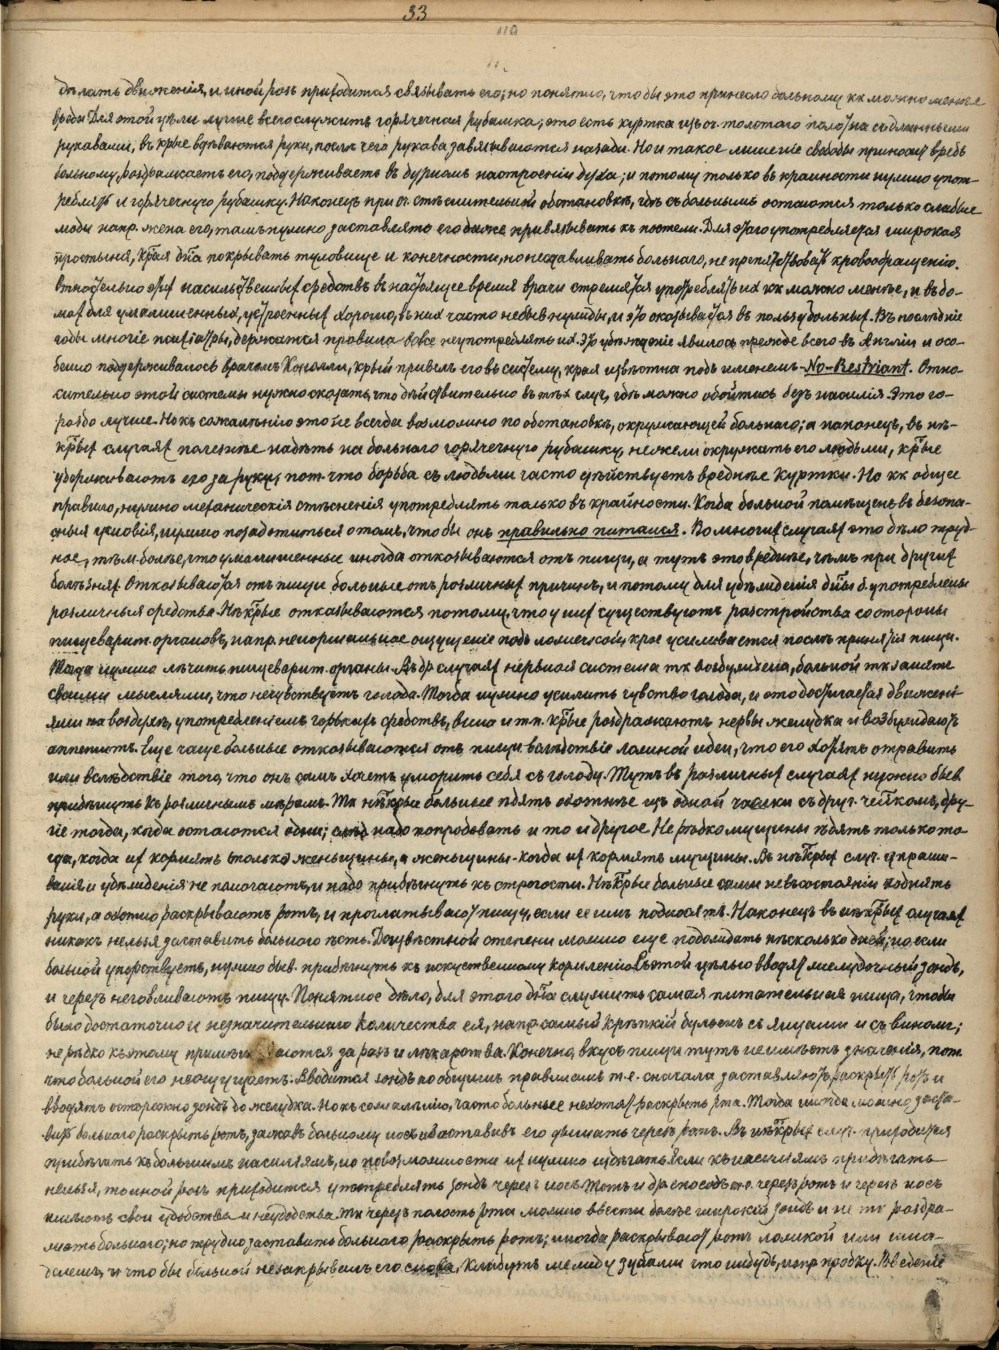 33
110
дѣлать движенія, и иной разъ приходится связывать его; но понятно, что бы это принесло больному кк можно менѣе
вреда. Для этой цѣли лучше всего служитъ горячечная рубашка; это есть куртка изъ оч. толстаго полотна съ длинными
рукавами, въ крые вдѣваются руки, послѣ чего рукава завязываются назади. Но и такое лишеніе свободы приноситъ вредъ
больному, раздражаетъ его, поддерживаетъ въ дурномъ настроеніи духа; и потому только въ крайности нужно упот-
реблять и горячечную рубашку. Наконецъ при оч. стѣснительной обстановкѣ, гдѣ съ больнымъ остаются только слабые
люди напр. жена его, тамъ нужно заставлять его даже привязывать къ постели. Для этаго употребляется широкая
простыня, края дна покрывать туловище и конечности, но не сдавливать больнаго, не препятствовать кровообращенію.
Относительно этих насильственныхъ средствъ въ настоящее время врачи стремятся употреблять их кк можно менѣе, и въ до-
мах для умалишенныхъ, устроенныхъ хорошо, въ них часто не быв. нужды, и это оказывается въ пользу больных. Въ послѣдніе
годы многіе психіатры, держатся правила вовсе не употреблять их. Это убѣжденіе явилось прежде всего въ Англіи и осо-
бенно поддерживалось врачемъ Конолли, крый привелъ его въ систему, края извѣстна подъ именемъ - No-Restriant. Отно-
сительно этой системы нужно сказать, что дѣйствительно въ тѣх случ., гдѣ можно обойтись безъ насилія. Это го-
раздо лучше. Но къ сожалѣнію это не всегда возможно по обстановкѣ, окружающей больнаго; а наконецъ, въ нѣ-
крых случаях полезнѣе надѣть на больнаго горячечную рубашку, нежели окружать его людьми, крые
удерживаютъ его за руки, пот. что борьба съ людьми часто дѣйствуетъ вреднѣе куртки. Но кк общее
правило, нужно механическія стѣсненія употреблять только въ крайности. Когда больной помѣщенъ въ безопа-
сныя условія, нужно позаботиться о томъ, что бы онъ правильно питался. Во многих случаях это дѣло труд-
ное, тѣмъ болѣе, что умалишенные иногда отказываются отъ пищи, а тутъ это вреднѣе, чѣмъ при других
болѣзнях. Отказываются отъ пищи больные отъ различных причинъ, и потому для убѣжденія дны б. употреблены
различныя средства. Нѣкрые отказываются потому, что у них существуютъ разстройства со стороны
пищеварит. органовъ, напр. ненормальное ощущеніе подъ ложечкой, крое усиливается послѣ принятія пищи.
Тогда нужно лѣчить пищеварит. органы. Въ др. случаях нервная система тк возбуждена, больной тк занятъ
своими мыслями, что не чувствуетъ голода. Тогда нужно усилить чувство голода, и это достигается движені-
ями на воздухѣ, употребленіемъ горьких средствъ, вина и т.п. крые раздражаютъ нервы желудка и возбуждаютъ
аппетитъ. Еще чаще больные отказываются отъ пищи вслѣдствіе ложной идеи, что его хотятъ отравить
или вслѣдствіе того, что онъ самъ хочетъ уморить себя съ голоду. Тутъ въ различных случаях нужно быв.
прибѣгнуть къ различнымъ мѣрамъ. Тк нѣкрые больные ѣдятъ охотнѣе изъ одной чашки съ друг. челкомъ, дру-
гіе тогда, когда остаются одни; надо попробовать и то и другое. Не рѣдко мущины ѣдятъ только то-
гда, когда их кормятъ только женьщины, а женьщины - когда их кормятъ мущины. Въ нѣкрых случ. упраши-
ванія и убѣжденія не помогаютъ, и надо прибѣгнуть къ строгости. Нѣкрые больные сами не въ состояніи поднять
руки, а охотно раскрываютъ ротъ, и проглатываютъ пищу, если ее имъ подносятъ. Наконецъ въ нѣкрых случаях
никакъ нельзя заставить больнаго ѣсть. До извѣстной степени можно еще подождать нѣсколько дней; но если
больной упорствуетъ, нужно быв. прибѣгнуть къ искуственному кормленію. Съ этой цѣлью вводят желудочный зондъ,
и черезъ него вливаютъ пищу. Понятное дѣло, для этого дна служить самая питательная пища, чтобы
было достаточно и незначительнаго количества ея, напр. самый крѣпкій бульонъ съ яицами и съ виномъ;
не рѣдко къ этому примѣшиваются за разъ и лѣкарства. Конечно, вкусъ пищи тутъ не имѣетъ значенія, пот.
что больной его не ощущаетъ. Вводится зондъ по общимъ правиламъ т.е. сначала заставляютъ раскрыть ротъ и
вводятъ осторожно зондъ до желудка. Но къ сожалѣнію, часто больные не хотят раскрыть рта. Тогда иногда можно заста-
вить больнаго раскрыть ротъ, зажавъ больному носъ и заставивъ его дышать черезъ ротъ. Въ нѣкрых случ. приходится
прибѣгать къ большимъ насиліямъ, но по возможности их нужно избѣгать. Если къ насиліямъ прибѣгать
нельзя, то иной разъ приходится употреблять зондъ черезъ носъ. Тотъ и др. способъ т.е. черезъ ротъ и черезъ носъ
имѣютъ свои удобства и неудобства. Тк черезъ полость рта можно ввести болѣе широкій зондъ и не тк раздра-
жать больнаго; но трудно заставить больнаго раскрыть ротъ; иногда раскрываютъ ротъ ложкой или шпа-
делемъ, и что бы больной не закрывалъ его снова, кладутъ между зубами что нибудь, напр. пробку. Введеніе